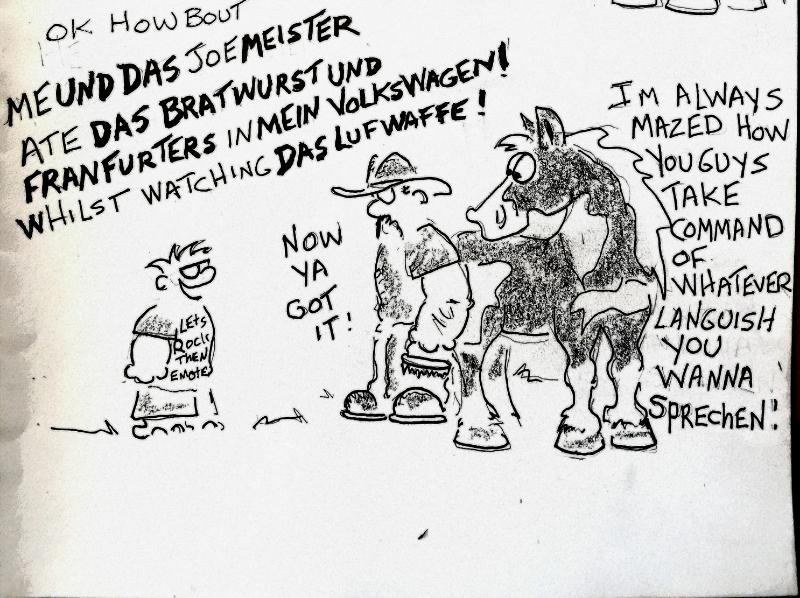 OK HOW BOUT
ME UND DAS JOEMEISTER
ATE DAS BRATWURST UND
FRANFURTERS IN MEIN VOLKSWAGEN!
WHILST WATCHING DAS LUFWAFFE!
NOW
YA
GOT
IT!
I'M ALWAYS
MAZED HOW
YOU GUYS
TAKE
COMMAND
OF
WHATEVER
LANGUISH
YOU
WANNA
SPRECHEN!
LETS
ROCK
THEN
EMOTE!